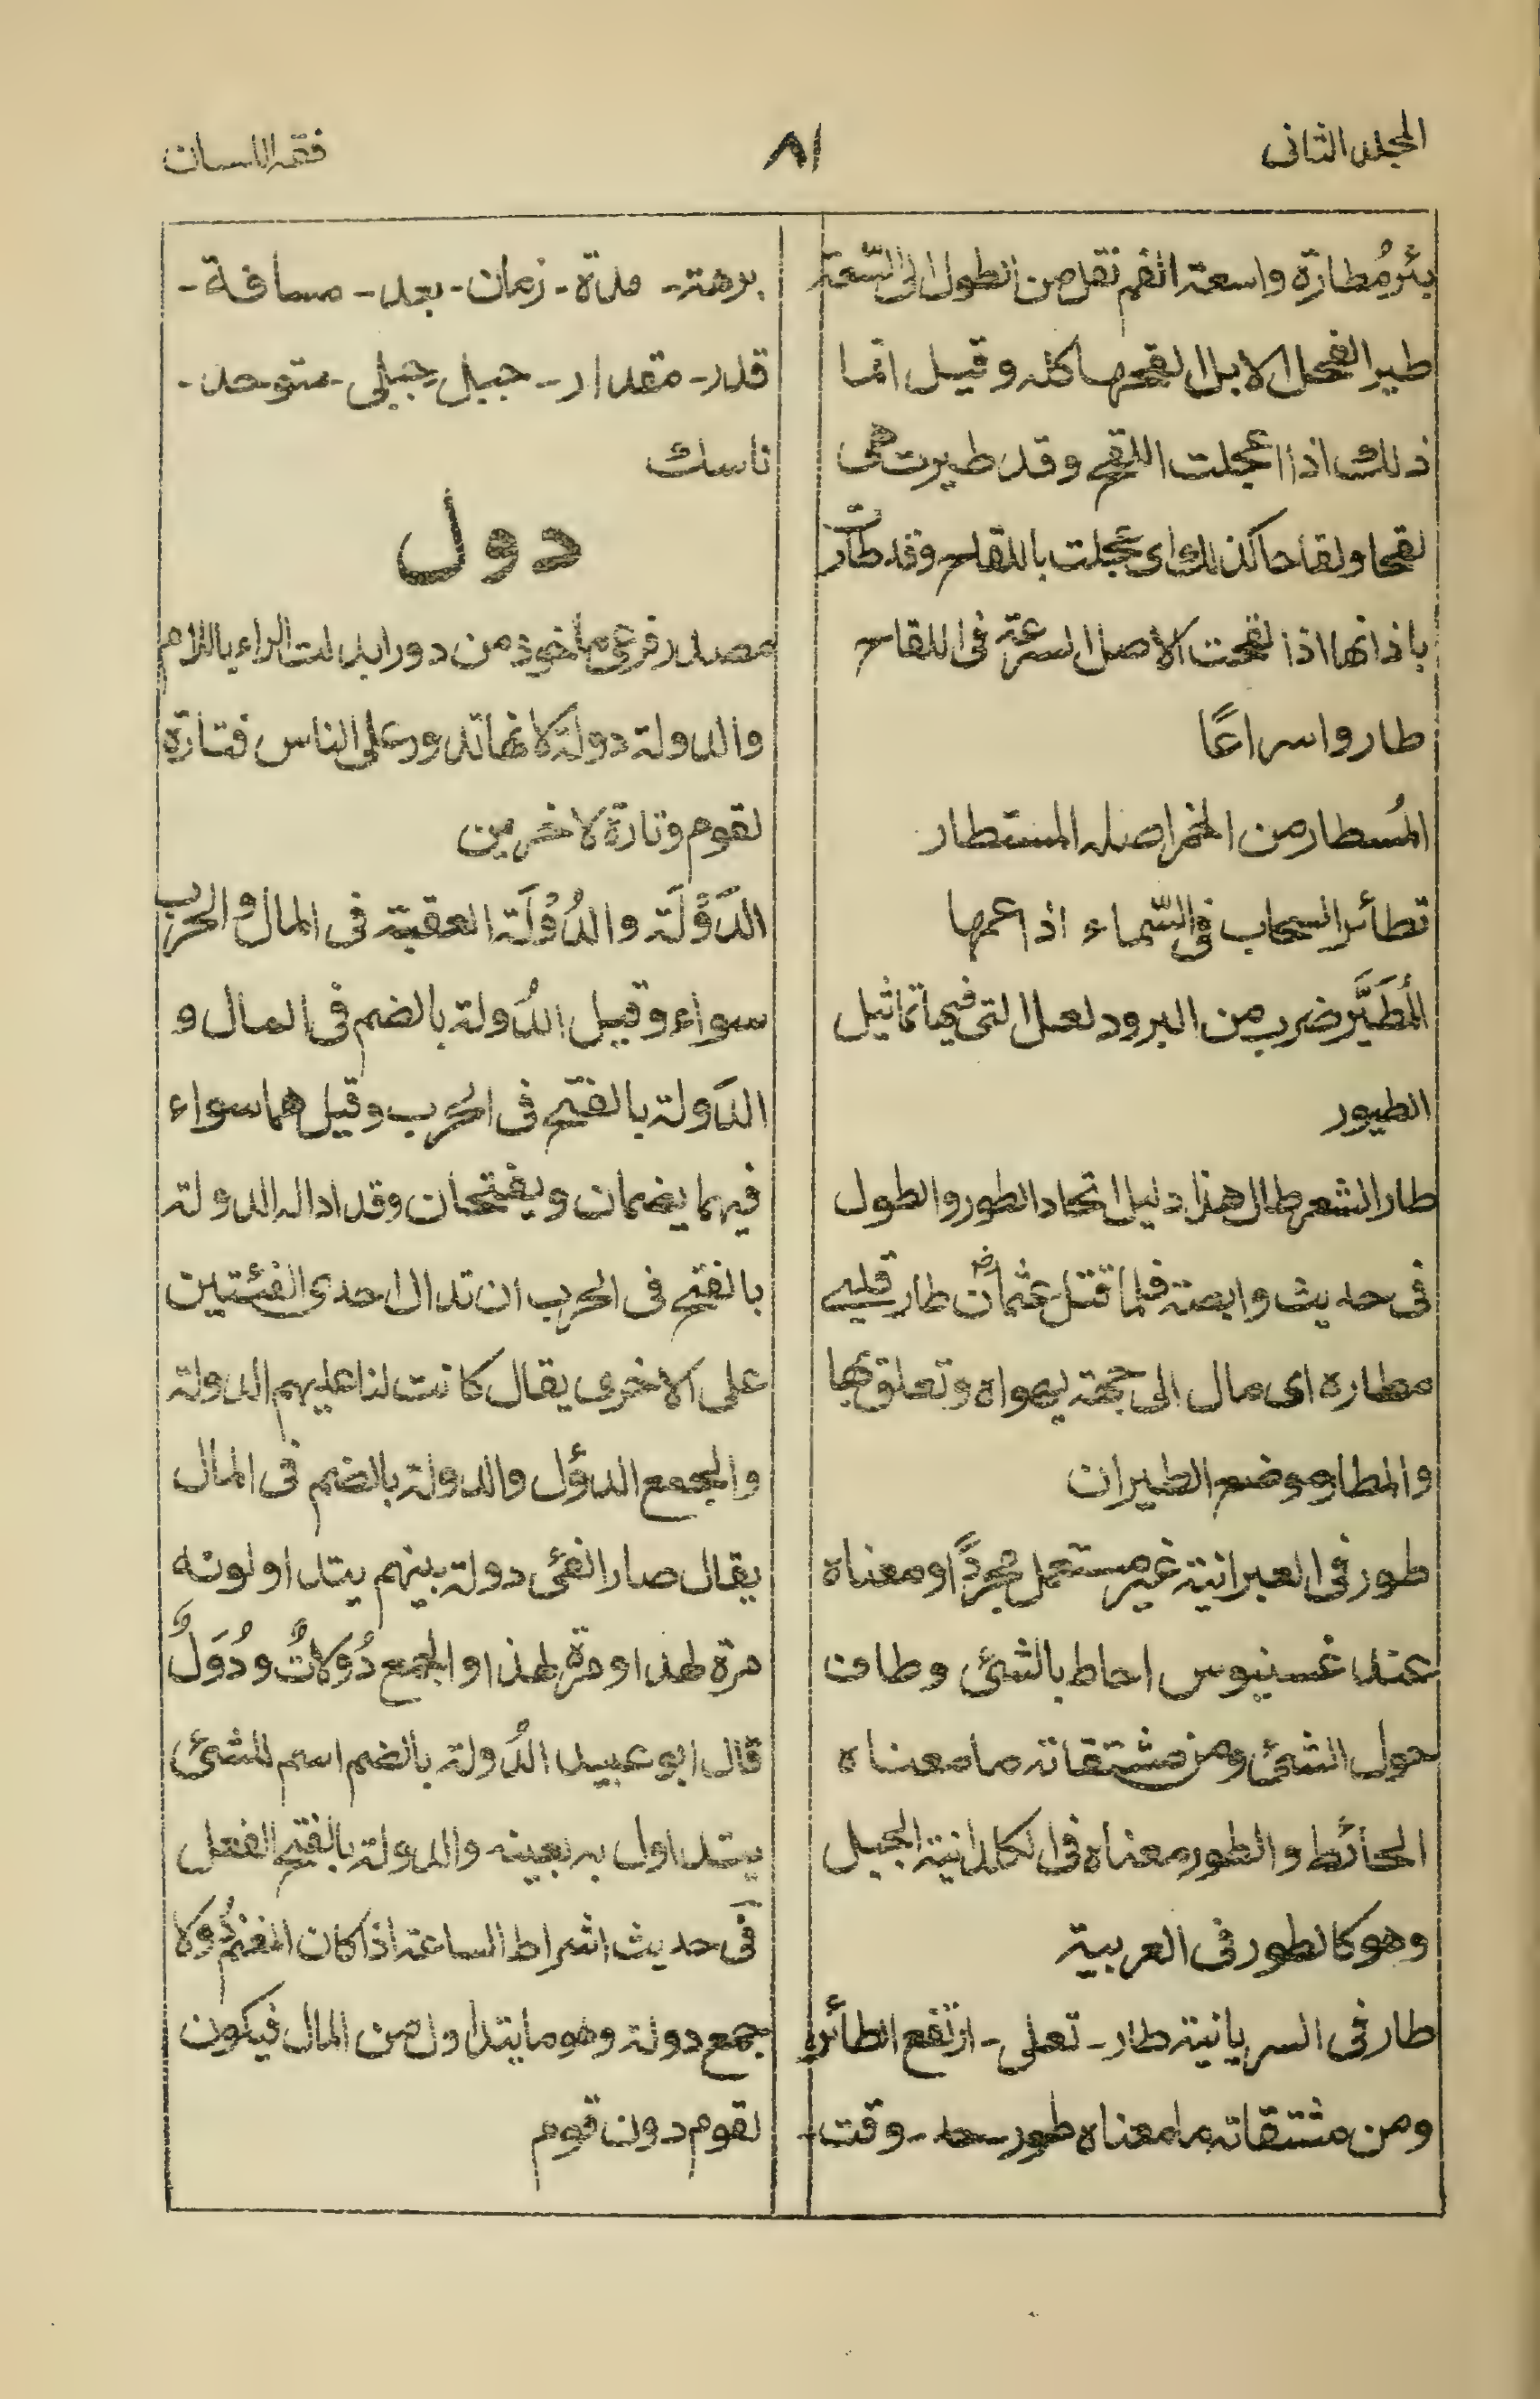 المجلد الثانى
٨١
فقه اللسان
بئر مُطارة واسعة الفم نقل من الطول الى السّعة
طير الفحل الابل القحها كله وقيل انما
ذلك اذا اعجلت اللقح وقد طيرت هى
لقحا ولقاحا كذلك اى عجلت باللقاح وقد طارت
باذانها اذا لقحت الاصل السرعة فى اللقاح
طاروا سراعًا
المُسطار من الخمر اصله المستطار
تطائر السحاب فى السّماء اذا عمها
المُطَيَّر ضرب من البرود لعل التى فيها تماثيل
الطيور
طار الشعر طال هذا دليل اتحاد الطور والطول
فى حديث وابصة فلما قتل عثمان رض طار قلبى
مطاره اى مال الى جهة يهواه وتعلق بها
والمطار موضع الطيران
طور فى العبرانية غير مستعمل مجردًا ومعناه
عند غسنيوس احاط بالشئ وطاف
حول الشئ ومن مشتقاته ما معناه
الحائط والطور معناه فى الكلدانية الجبل
وهو كالطور فى العربية
طار فى السريانية طار - تعلى - ارتفع الطائر
ومن مشتقاته ما معناه طور - حد - وقت -
برهة - مدة - زمان - بعد - مسافة -
قدر - مقدار - جبل جبلى - متوحد -
ناسك
دول
مصدر فرعى ماخوذ من دور ابدلت الراء باللام
والدولة دولة كانها تدور على الناس فتارة
لقوم وتارة لاخرين
الدَّوْلَة والدُوْلَة العقبة فى المال والحرب
سواء وقيل الدُولة بالضم فى المال و
الدَولة بالفتح فى الحرب وقيل هما سواء
فيهما يضمان ويفتحان وقد اداله الدولة
بالفتح فى الحرب ان تدال احدى الفئتين
على الاخرى يقال كانت لنا عليهم الدولة
والجمع الدؤل والدولة بالضم فى المال
يقال صار الفئ دولة بينهم يتداولونه
مرة لهذا ومرة لهذا والجمع دُوَلاتٌ ودُوَلٌ
قال ابو عبيد الدُولة بالضم اسم للشئ
يتداول به بعينه والدولة بالفتح الفعل
فى حديث اشراط الساعة اذا كان المغنم دُوَلا
جمع دولة وهو ما يتداول من المال فيكون
لقوم دون قوم